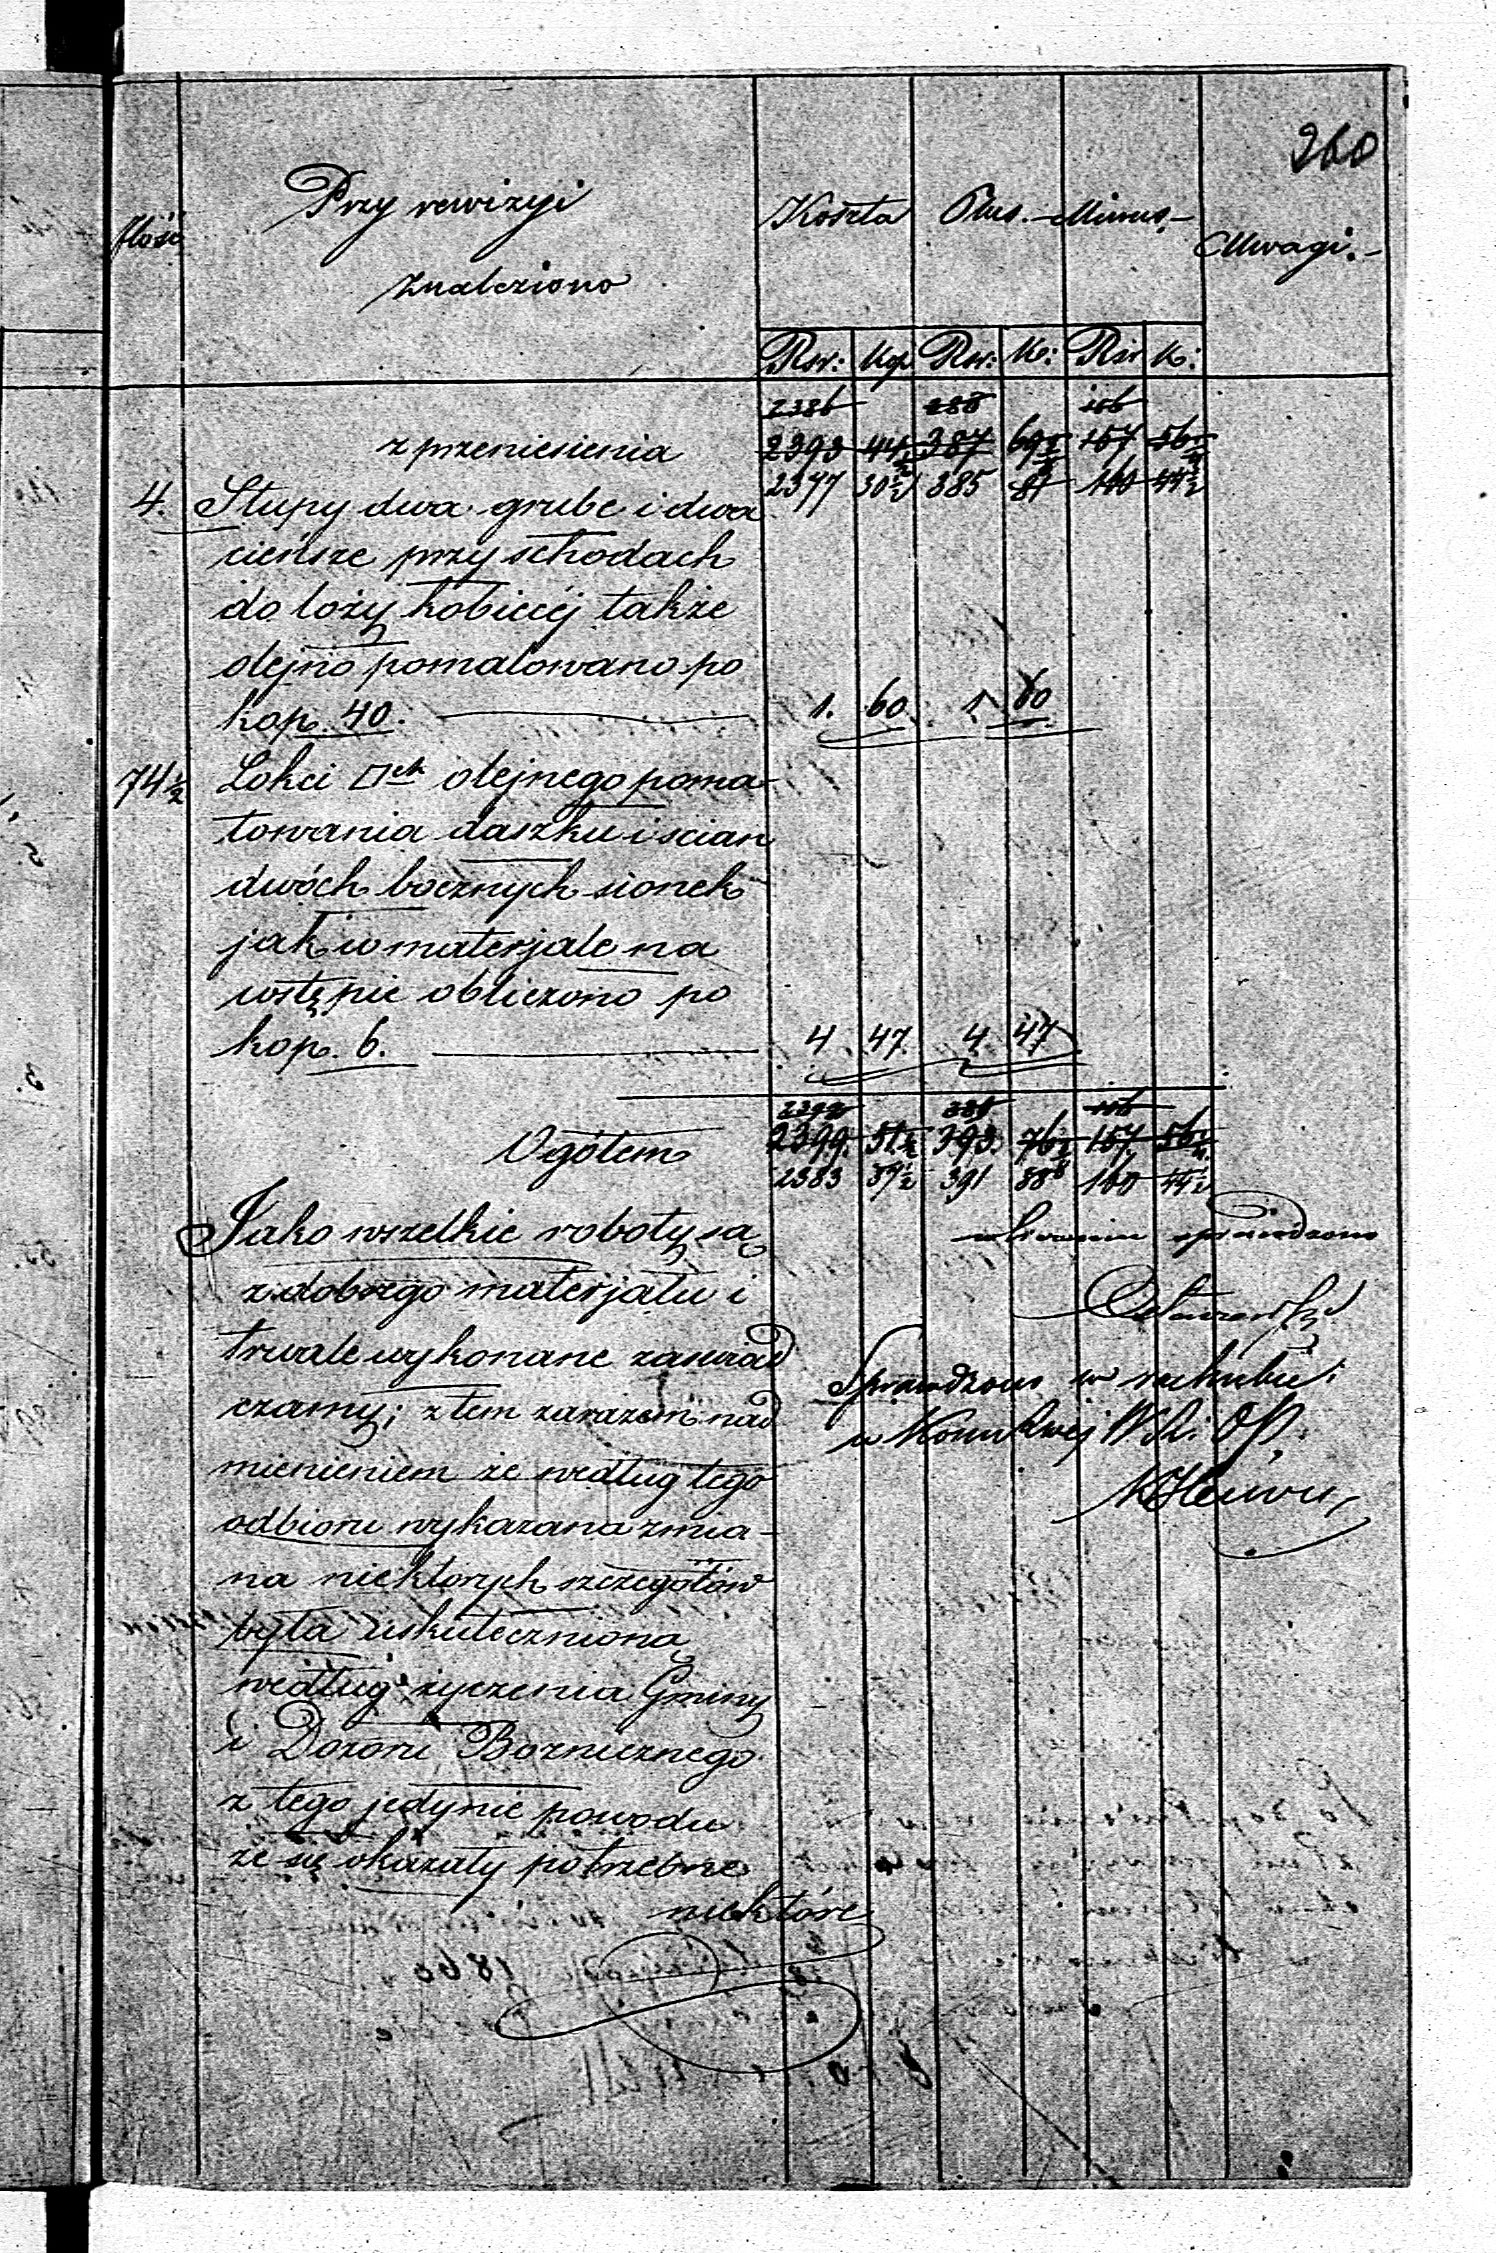 260
Ilość
Przy rewizyi
Znaleziono
Koszta Plus.- Minus.-
Uwagi.-
Rsr: Kop. Rsr: K: Rsr K:
2386 288 156
z przeniesienia 2393 44½ 387 69½ 157 56
2377 30½ 385 81 160 44½
4. Słupy dwa grube i dwa
cieńsze przy schodach
do loży kobiécéj także
olejno pomalowano po
kop. 40. 1. 60. 1 60
74½ Łokci □ch olejnego poma-
lowania daszku i scian
dwóch bocznych sionek
jak w materjale na
wstępie obliczono po
kop. 6. 4 47 4 47
Ogółem 2399. 51½ 393. 76½ 157. 56
2383 37½ 391 88 160 44½
Jako wszelkie roboty są
z dobrego materjału i
trwale wykonane zaswiad
czamy; z tem zarazem nad
mienieniem że według tego
odbioru wykazana zmia-
na niektórych szczegółów
była uskutecznioną
według życzenia Gminy
i Dozoru Bozniczego
z tego jedynie powodu
że się okazały potrzebne
niektóre
sprawdzono
Sprawdzono w rachubie
w